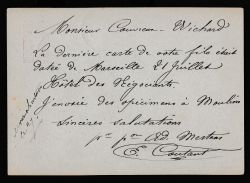 Monsieur Couvreur-Wichard
La dernière carte de votre fils était
datée de Marseille 21 Juillet
Hôtel des Négociants.
J'envoie des spécimens à Moulin
Sincères salutations
pr pon Ad. Mertens
Coutant